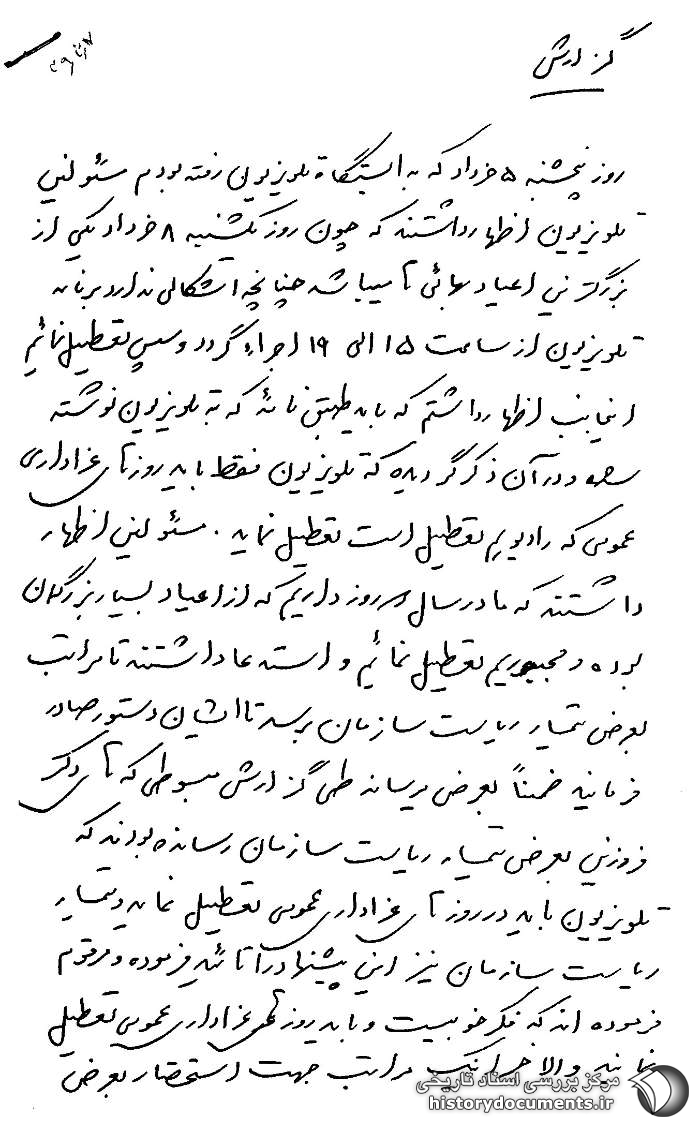 گزارش
روز پنجشنبه ۵ خرداد که به ایستگاه تلویزیون رفته بودم مسئولین
تلویزیون اظهار داشتند که چون روز یکشنبه ۸ خرداد یکی از
بزرگترین اعیاد بهائی ها میباشد چنانچه اشکالی ندارد برنامه
تلویزیون از ساعت ۱۵ الی ۱۹ اجراء گردد و سپس تعطیل نمائیم
اینجانب اظهار داشتم که باید طبق نامه که به تلویزیون نوشته
شده و در آن ذکر گردیده که تلویزیون فقط باید روزهای عزاداری
عمومی که رادیو هم تعطیل است تعطیل نماید . مسئولین اظهار
داشتند که ما در سال روز داریم که از اعیاد بسیار بزرگمان
بوده و مجبوریم تعطیل نمائیم و استدعا داشتند تا مراتب
بعرض تیمسار ریاست سازمان برسد تا ایشان دستور صادر
فرمایند ضمناً بعرض میرساند طی گزارش مبسوطی که آقای دکتر
فروزین بعرض تیمسار ریاست سازمان رسانده بودند که
تلویزیون باید در روزهای عزاداری عمومی تعطیل نماید و تیمسار
ریاست سازمان نیز این پیشنهاد را تائید فرموده و مرقوم
فرموده اند که فکر خوبیست و باید روزهای عزاداری عمومی تعطیل
نمایند والا خیر اینک مراتب جهت استحضار بعرض
مرکز بررسی اسناد تاریخی
historydocuments.ir